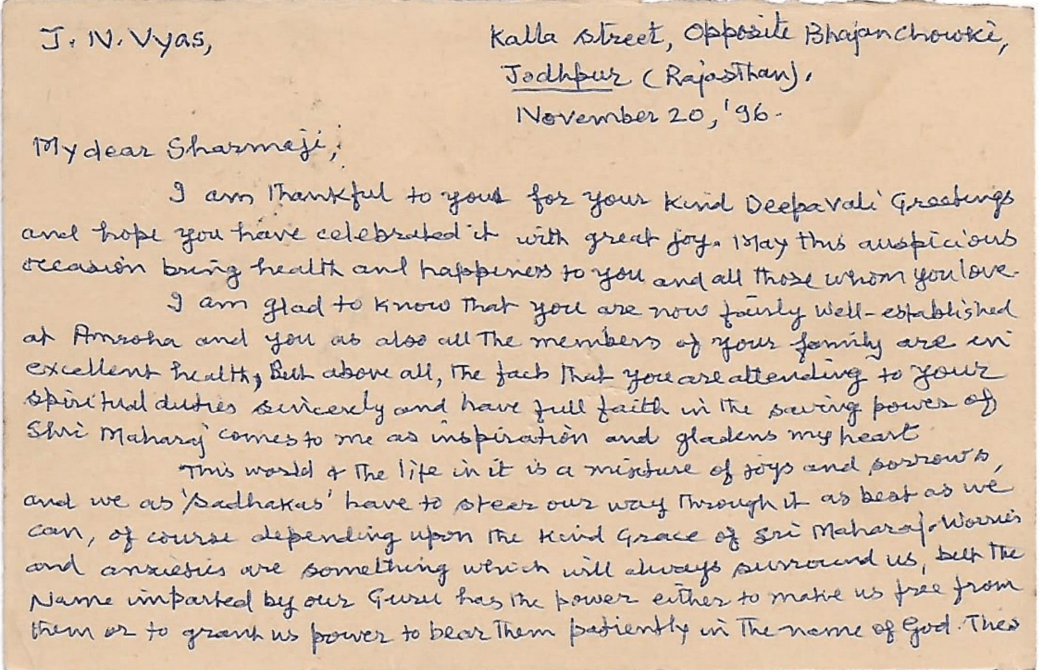 J. N. Vyas,
Kalla Street, Opposite Bhajan Chowki,
Jodhpur (Rajasthan).
November 20, '96.
My dear Sharmaji,
I am thankful to you for your kind Deepavali Greetings
and hope you have celebrated it with great joy. May this auspicious
occasion bring health and happiness to you and all those whom you love.
I am glad to know that you are now fairly well-established
at Amroha and you as also all the members of your family are in
excellent health, But above all, the fact that you are attending to your
spiritual duties sincerely and have full faith in the saving power of
Shri Maharaj comes to me as inspiration and gladens my heart
This world & the life in it is a mixture of joys and sorrows,
and we as 'Sadhakas' have to steer our way through it as best as we
can, of course depending upon the kind Grace of Sri Maharaj. Worries
and anxieties are something which will always surround us, but the
Name imparted by our Guru has the power either to make us free from
them or to grant us power to bear them patiently in the name of God. This